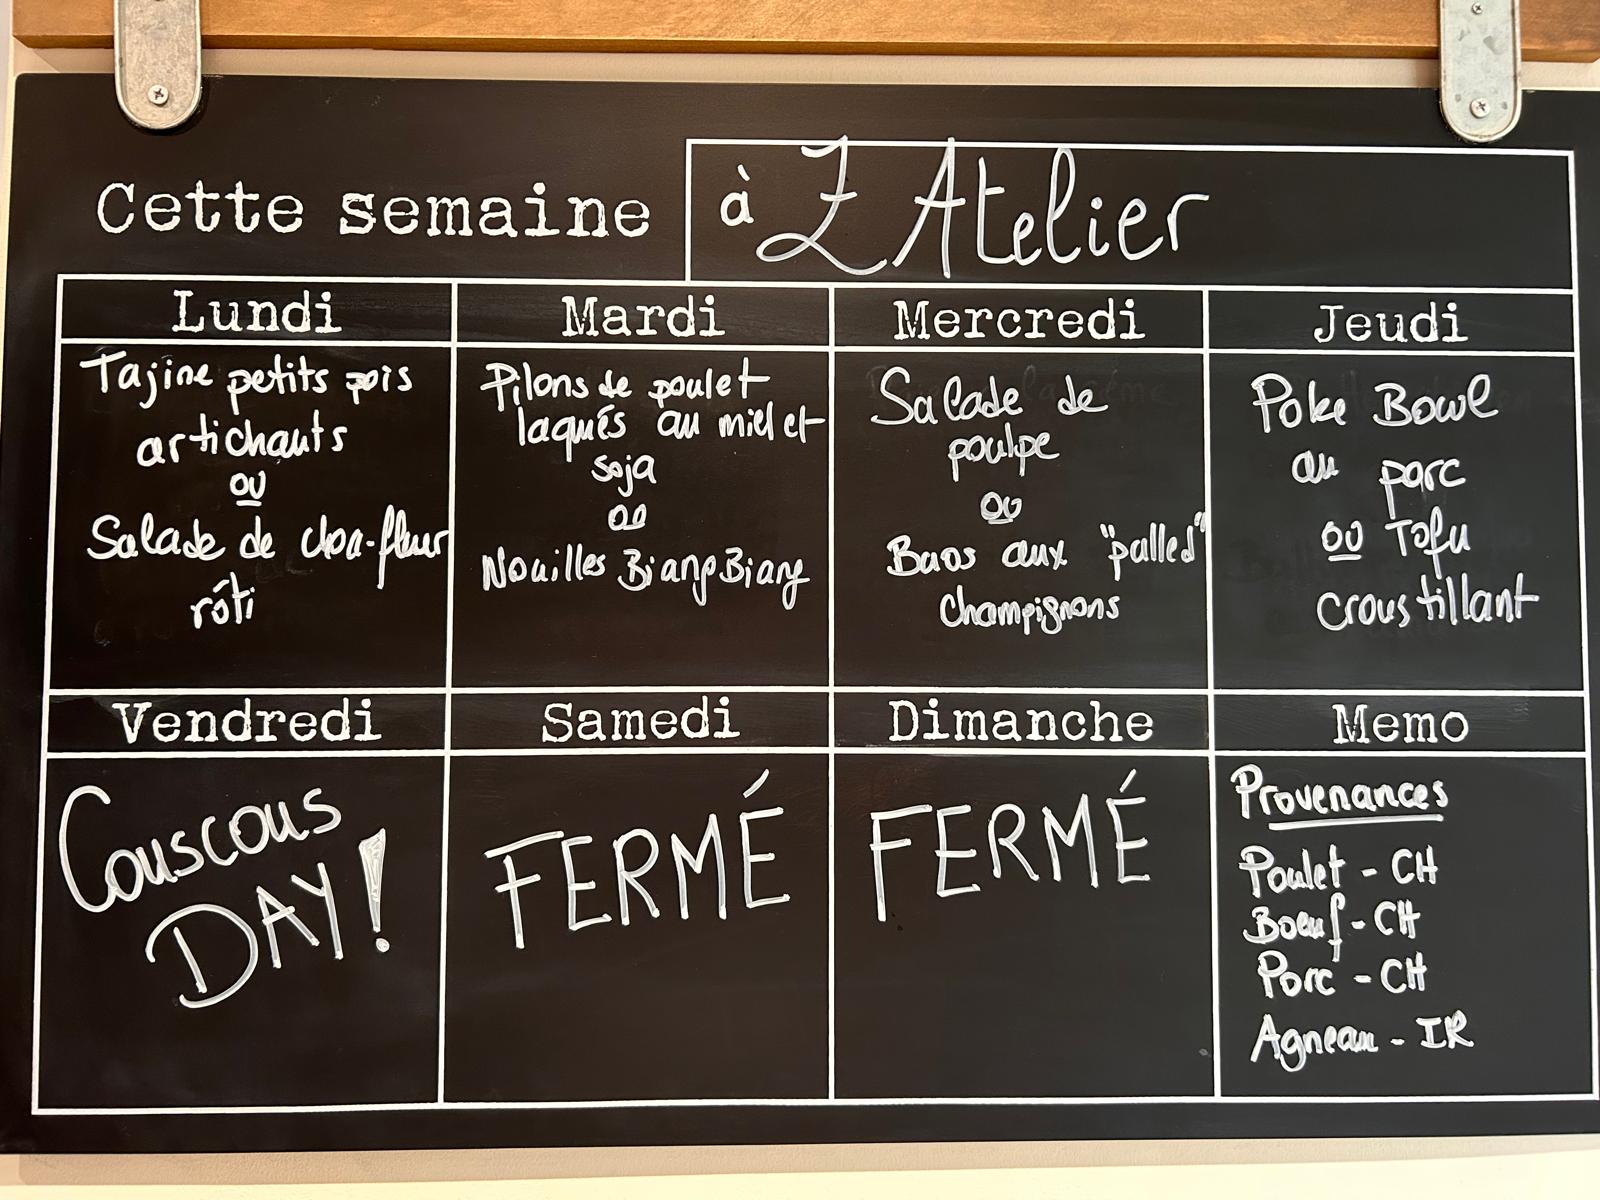 Cette semaine
à ZAtelier
Lundi
Tajine petits pois
artichauts
ou
Salade de chou-fleur
rôti
Mardi
Pilons de poulet
laqués au miel et
soja
ou
Nouilles BiangBiang
Mercredi
Salade de
poulpe
ou
Baos aux "pulled"
champignons
Jeudi
Poke Bowl
au porc
ou Tofu
croustillant
Vendredi
Couscous
DAY!
Samedi
FERMÉ
Dimanche
FERMÉ
Memo
Provenances
Poulet - CH
Boeuf - CH
Porc - CH
Agneau - IR